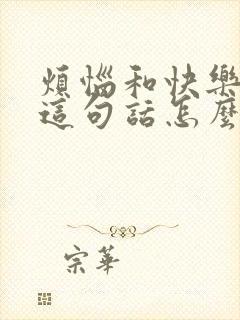 煩惱和快樂
這句話怎麼
宗華